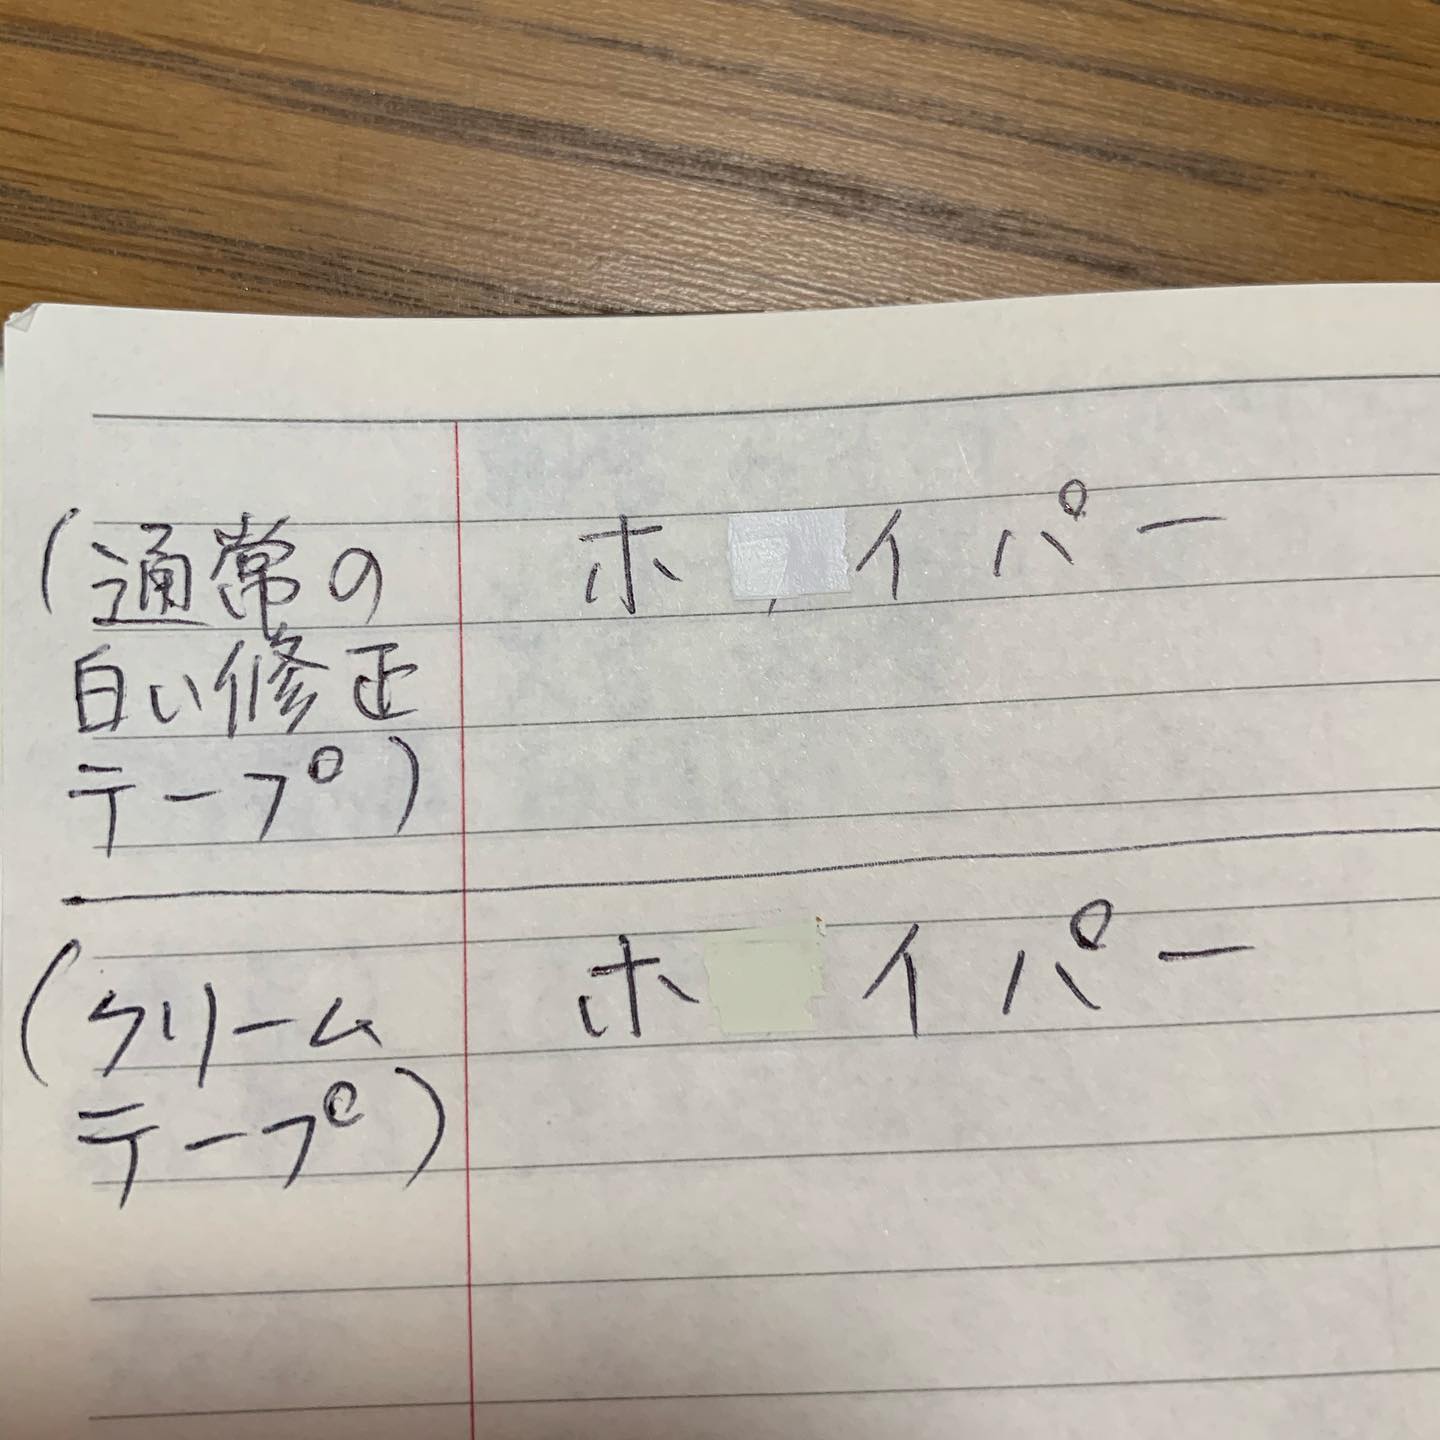 (通常の
白い修正
テープ)
ホ イパー
(クリーム
テープ)
ホ イパー